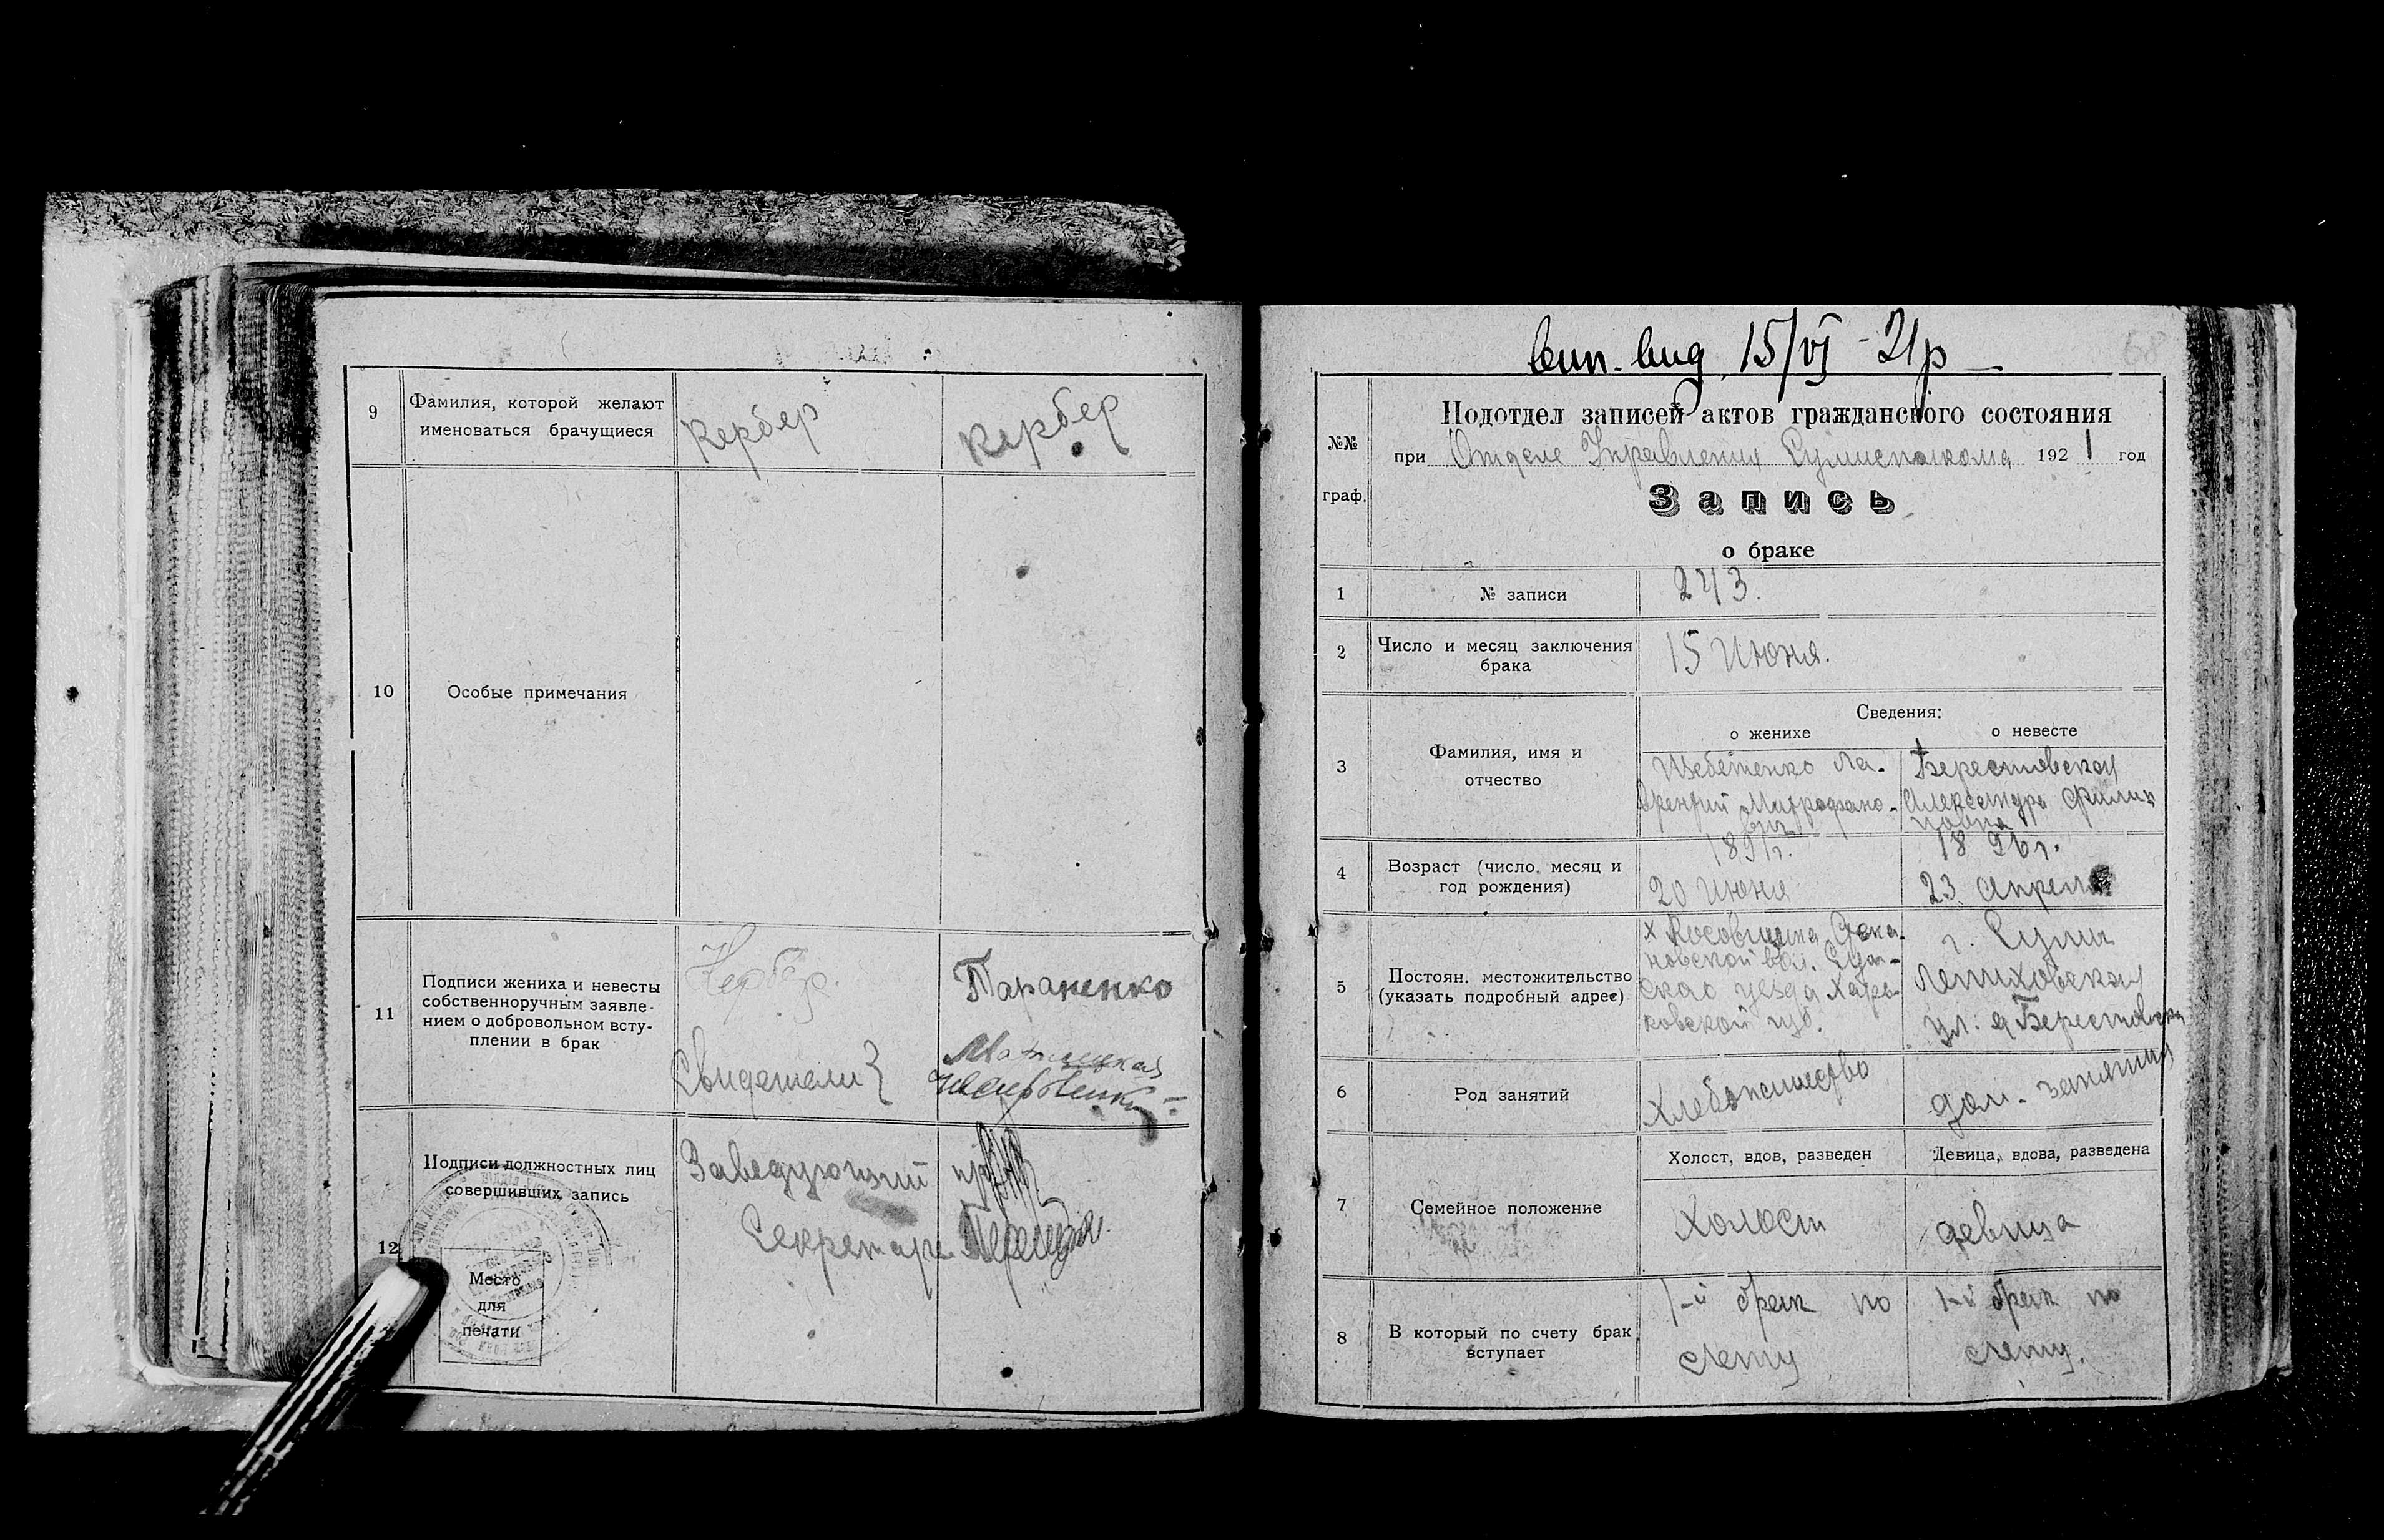 9
Фамилия, которой желают
именоваться брачущиеся
Кербер
Кербер
10
Особые примечания
11
Подписи жениха и невесты
собственноручным заявле-
нием о добровольном всту-
плении в брак
Кербер.
Тараненко
Свидетели}
12
Подписи должностных лиц
совершивших запись
Заведующий
Секретарь
Место
для
печати
15/VI - 21р
68
№№
граф.
Подотдел записей актов гражданского состояния
при Отделе Управления Сумисполкома 1921 год
Запись
о браке
1
№ записи
243.
2
Число и месяц заключения
брака
15 Июня.
3
Фамилия, имя и
отчество
Сведения:
о женихе
о невесте
Щебетенко Ла-
врентий Митрофано-
вич
Берестовская
Александра Филип
повна
4
Возраст (число, месяц и
год рождения)
1891г.
20 Июня
1896г.
23 Апреля
5
Постоян. местожительство
(указать подробный адрес)
х Косовщина
новской вол. Сум-
ского уезда Харь-
ковской губ.
г. Сумы
ул. д Берестовской
6
Род занятий
Хлебопашество
дом. занятия
7
Семейное положение
Холост, вдов, разведен
Девица, вдова, разведена
Холост
девица
8
В который по счету брак
вступает
1-й брак по
счету
1-й брак по
счету.